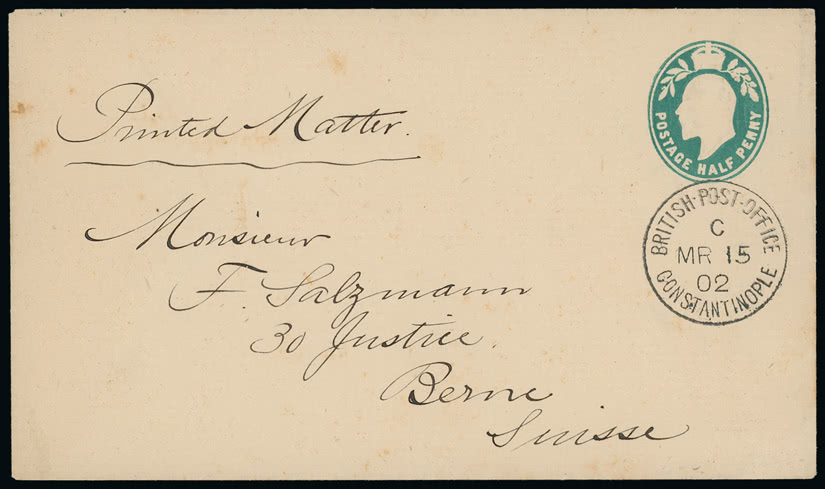 Printed Matter.
POSTAGE HALF PENNY
BRITISH·POST·OFFICE
C
MR 15
02
CONSTANTINOPLE
Monsieur
F. Salzmann
30 Justice.
Berne
Suisse